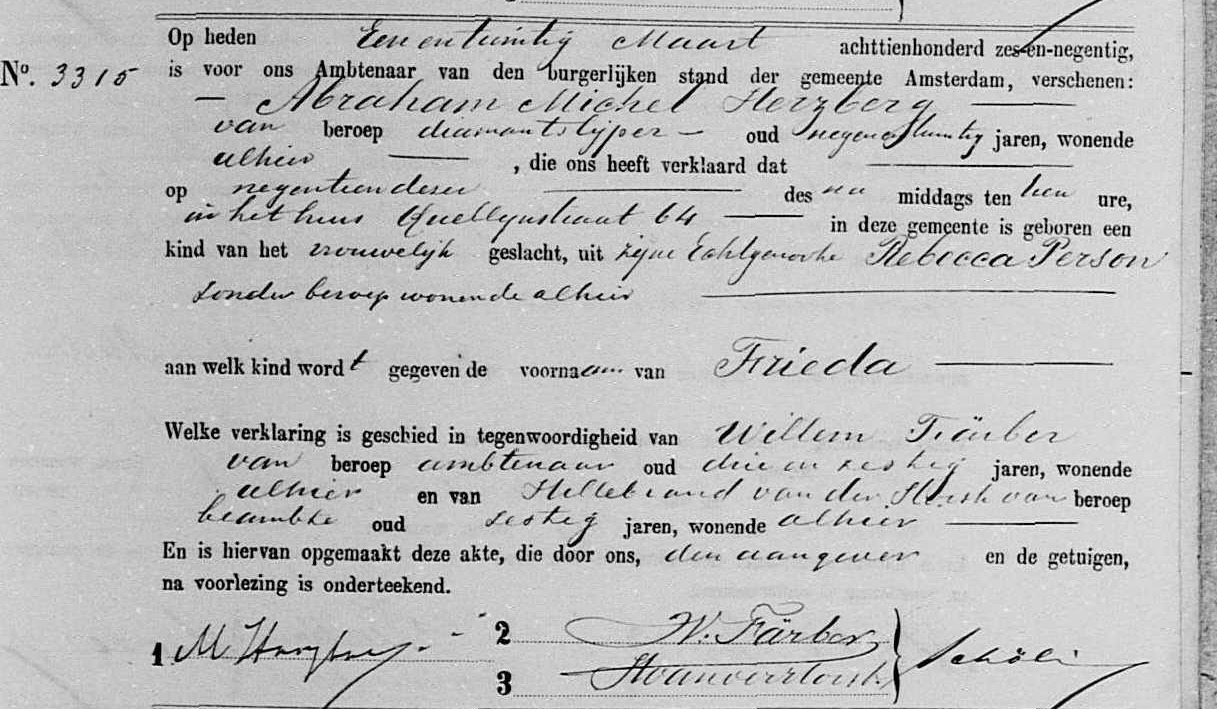 Op heden Een en twintig Maart achttienhonderd zes-en-negentig,
No. 3315 is voor ons Ambtenaar van den burgerlijken stand der gemeente Amsterdam, verschenen:
Abraham Michel Herzberg
van beroep diamantslijper oud negenentwintig jaren, wonende
alhier , die ons heeft verklaard dat
op negentien dezer des na middags ten tien ure,
in het huis Quellijnstraat 64 in deze gemeente is geboren een
kind van het vrouwelijk geslacht, uit zijne Echtgenoote Rebecca Person
zonder beroep wonende alhier
aan welk kind wordt gegeven de voornaam van Frieda
Welke verklaring is geschied in tegenwoordigheid van Willem Färber
van beroep ambtenaar oud drie en zestig jaren, wonende
alhier en van Hillebrand van der Horst van beroep
beambte oud zestig jaren, wonende alhier
En is hiervan opgemaakt deze akte, die door ons, den aangever en de getuigen,
na voorlezing is onderteekend.
1 M Herzberg 2 W. Färber
3